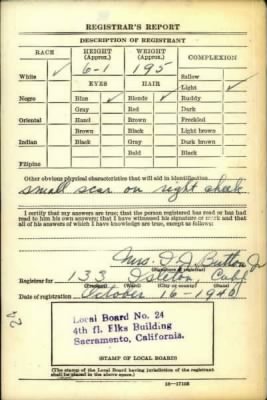 REGISTRAR'S REPORT
DESCRIPTION OF REGISTRANT
RACE
HEIGHT
(Approx.)
WEIGHT
(Approx.)
COMPLEXION
White ✓
6-1
195
Sallow
EYES
HAIR
Light ✓
Negro
Blue ✓
Blonde ✓
Ruddy
Gray
Red
Dark
Oriental
Hazel
Brown
Freckled
Brown
Black
Light brown
Indian
Black
Gray
Dark brown
Bald
Black
Filipino
Other obvious physical characteristics that will aid in identification
small scar on right cheek.
I certify that my answers are true; that the person registered has read or has
had read to him his own answers; that I have witnessed his signature or mark and that
all of his answers of which I have knowledge are true, except as follows:
Mrs. J. J. Button Jr
(Signature of registrar)
Registrar for 133 Isleton, Calif
(City or county) (State)
Date of registration October 16-1940
24
Local Board No. 24
4th fl. Elks Building
Sacramento, California.
(STAMP OF LOCAL BOARD)
(The stamp of the Local Board having jurisdiction of the registrant
shall be placed in the above space.)
16-17105